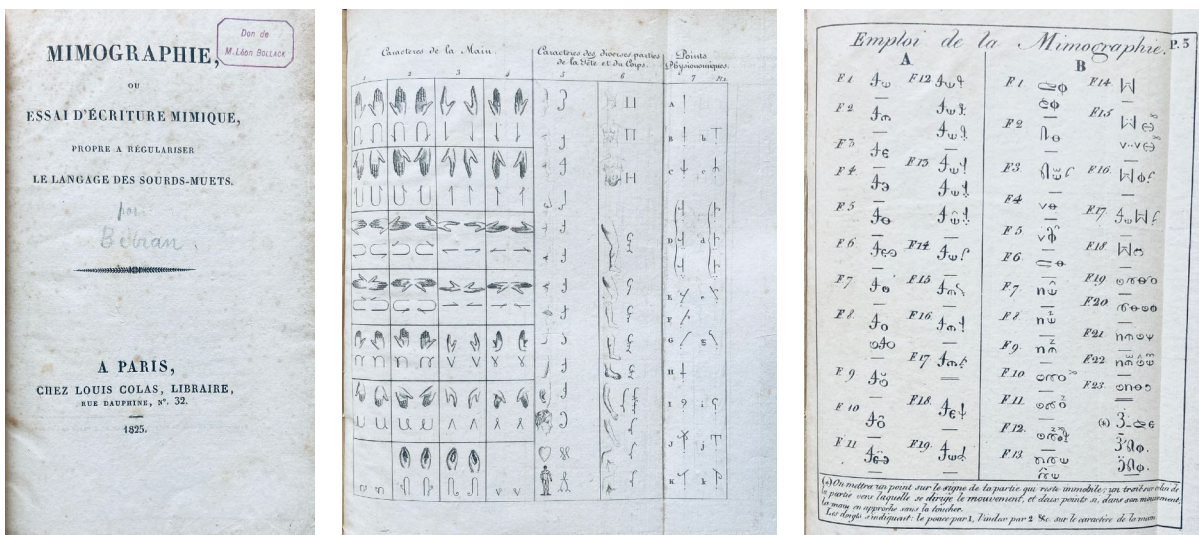 Don de
M. Léon BOLLACK
MIMOGRAPHIE,
OU
ESSAI D'ÉCRITURE MIMIQUE,
PROPRE A RÉGULARISER
LE LANGAGE DES SOURDS-MUETS.
par
Bébian.
A PARIS,
CHEZ LOUIS COLAS, LIBRAIRE,
RUE DAUPHINE, N°. 32.
1825.
Caractères de la Main.
Caractères des diverses parties
de la Tête et du Corps.
Points
Physionomiques.
1 2 3 4 5 6 7
A
B b
C c
D d
E e
F
G g
H
I i
J j
K k
Emploi de la Mimographie. P. 3
A
B
F 1 F 12
F 2
F 3 F 13
F 4
F 5
F 6 F 14
F 7 F 15
F 8 F 16
F 9 F 17
F 10 F 18
F 11 F 19
F 1 F 14
F 2 F 15
F 3 F 16
F 4 F 17
F 5
F 6 F 18
F 7 F 19
F 8 F 20
F 9 F 21
F 10 F 22
F 11 F 23
F 12 (a)
F 13
(a) On mettra un point sur le signe de la partie qui reste immobile; un trait au dessus de
la partie vers laquelle se dirige le mouvement, et deux points si, dans son mouvement,
la main en approche sans la toucher.
Les doigts s'indiquent: le pouce par 1, l'index par 2 &c. sur le caractère de la main